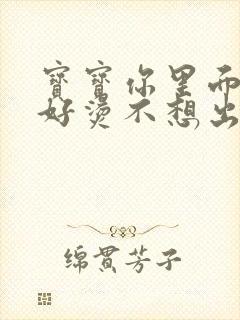 寶寶你里面
好燙不想出
绵贯芳子